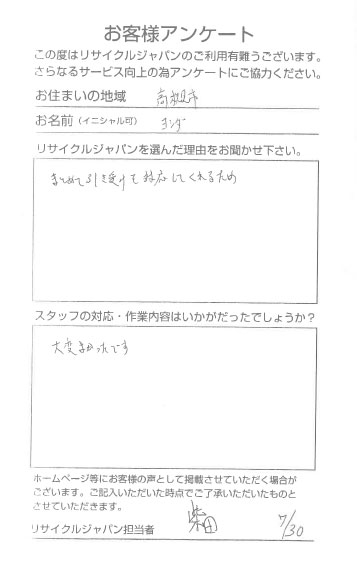 お客様アンケート
この度はリサイクルジャパンのご利用有難うございます。
さらなるサービス向上の為アンケートにご協力ください。
お住まいの地域 高槻市
お名前(イニシャル可)
リサイクルジャパンを選んだ理由をお聞かせ下さい。
まとめて引き受けも対応してくれるため
スタッフの対応・作業内容はいかがだったでしょうか?
大変よかったです
ホームページ等にお客様の声として掲載させていただく場合が
ございます。ご記入いただいた時点でご了承いただいたものと
させていただきます。
リサイクルジャパン担当者 柴田 7/30